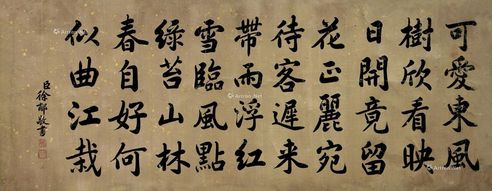 可愛東風
樹欣看映
日開竟留
花正麗宛
待客遲来
帶雨浮紅
雪臨風點
綠苔山林
春自好何
似曲江栽
臣徐郙敬書